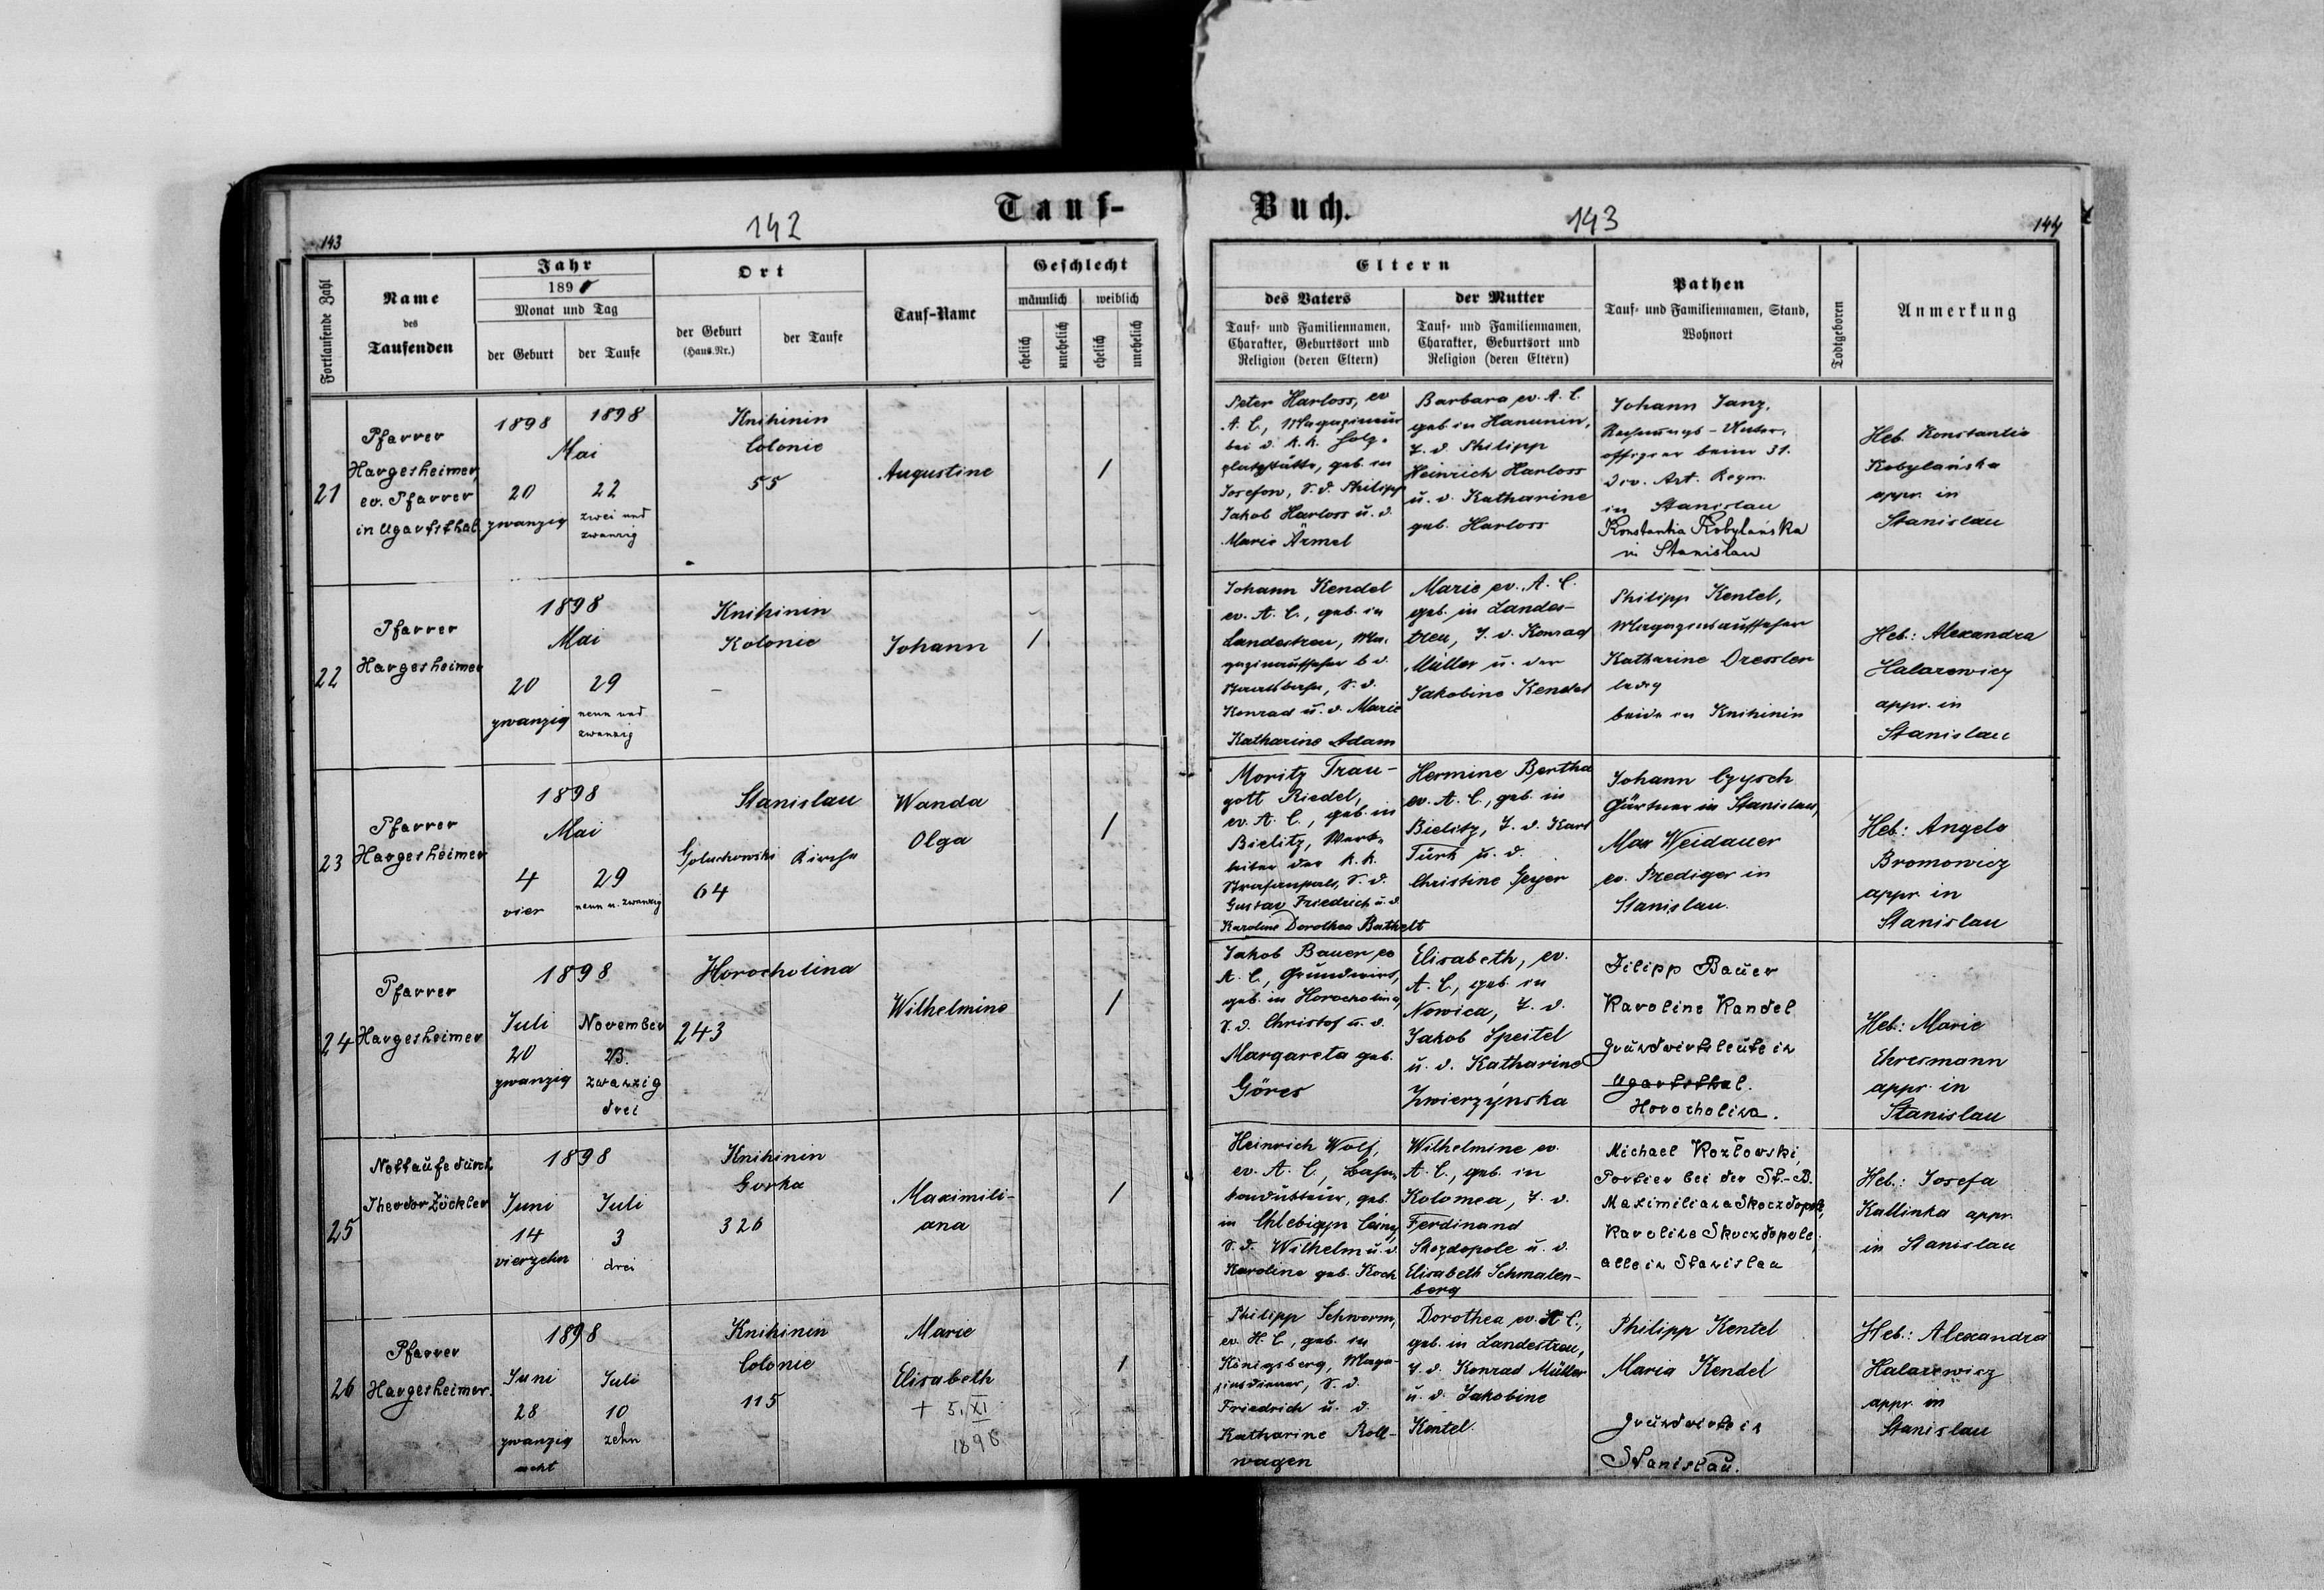 Tauf-
Buch.
142
143
143
144
Fortlaufende Zahl
Name
des
Taufenden
Jahr
189
Monat und Tag
der Geburt
der Taufe
Ort
der Geburt
(Haus-Nr.)
der Taufe
Tauf-Name
Geschlecht
männlich
weiblich
ehelich
unehelich
ehelich
unehelich
Eltern
des Vaters
Tauf- und Familiennamen,
Charakter, Geburtsort und
Religion (deren Eltern)
der Mutter
Tauf- und Familiennamen,
Charakter, Geburtsort und
Religion (deren Eltern)
Pathen
Tauf- und Familiennamen, Stand,
Wohnort
Todtgeboren
Anmerkung
21
Pfarrer
Hargesheimer,
ev. Pfarrer
in Ugartsthal
1898
1898
Mai
20
22
zwanzig
zwei und
zwanzig
Knihinin
Colonie
55
Augustine
/
Peter Harloss, ev
A. C., Magazineur
bei d. k. k. Holz-
geb. in
Josefow, S. d. Philipp
Jakob Harloss u. d.
Marie Ärmel
Barbara ev. A. C.
geb. in Hanunin,
T. d. Philipp
Heinrich Harloss
u. d. Katharine
geb. Harloss
Johann Janz,
Rechnungs-Unter-
offizier beim 31.
Div. Art. Regm.
in Stanislau
Konstantia Kobylańska
in Stanislau
Heb. Konstantia
Kobylańska
appr. in
Stanislau
22
Pfarrer
Hargesheimer
1898
Mai
20
29
zwanzig
neun und
zwanzig
Knihinin
Kolonie
–
Johann
/
Johann Kendel
ev. A. C., geb. in
Landestreu, Ma-
gazinaufseher b d.
Staatsbahn, S. d.
Konrad u. d. Marie
Katharine Adam
Marie ev. A. C.
geb. in Landes-
treu, T. d. Konrad
Müller u. der
Jakobine Kendel
Philipp Kentel,
Magazinsaufseher
Katharine Dressler
ledig
beide in Knihinin
Heb.: Alexandra
Halarewicz
appr. in
Stanislau
23
Pfarrer
Hargesheimer
1898
Mai
4
29
vier
neun u. zwanzig
Stanislau
Goluchowski Kirche
64
Wanda
Olga
/
Moritz Trau-
gott Riedel,
ev. A. C., geb. in
Bielitz, Werk-
leiter der k. k.
S. d.
Gustav Friedrich u. d.
Karoline Dorothea Bathelt
Hermine Bertha
ev. A. C., geb. in
Bielitz, T. d. Karl
Türk u. d.
Christine Geyer
Johann Czysch
Gärtner in Stanislau,
Max Weidauer
ev. Prediger in
Stanislau.
Heb.: Angela
Bromowicz
appr. in
Stanislau
24
Pfarrer
Hargesheimer
1898
Juli
November
20
23.
zwanzig
zwanzig
drei
Horocholina
243
Wilhelmine
/
Jakob Bauer ev
A. C., Grundwirt,
geb. in Horocholina,
S. d. Christof u. d.
Margareta geb.
Göres
Elisabeth, ev.
A. C., geb. in
Nowica, T. d.
Jakob Speitel
u. d. Katharine
Zwierzynska
Filipp Bauer
Karoline Kandel
Grundwirtsleute in
Ugartsthal.
Horocholina.
Heb.: Marie
Ehresmann
appr. in
Stanislau
25
Nottaufe durch
Theodor Zöckler
1898
Juni
Juli
14
3
vierzehn
drei
Knihinin
Gorka
326
Maximili-
ana
/
Heinrich Wolf,
ev. A. C., Bahn-
kondukteur, geb.
in Chlebiczyn
S. d. Wilhelm u. d.
Karoline geb. Koch
Wilhelmine ev.
A. C., geb. in
Kolomea, T. d.
Ferdinand
Skozdopole u. d.
Elisabeth Schmalen-
berg
Michael Kozłowski,
Portier bei der St.-B.
Maximiliana Skoczdopole,
Karoline Skoczdopole,
alle in Stanislau
Heb.: Josefa
Kallinka appr.
in Stanislau
26
Pfarrer
Hargesheimer.
1898
Juni
Juli
28
10
zwanzig
zehn
acht
Knihinin
Colonie
115
Marie
Elisabeth
+ 5. XI
1898
/
Philipp Schworm,
ev. H. C., geb. in
Königsberg, Maga-
zinsdiener, S. d.
Friedrich u. d.
Katharine Roll-
wagen
Dorothea ev. A C.,
geb. in Landestreu,
T. d. Konrad Müller
u. d. Jakobine
Kentel.
Philipp Kentel
Maria Kendel
Grundwirte in
Stanislau.
Heb.: Alexandra
Halarewicz
appr. in
Stanislau